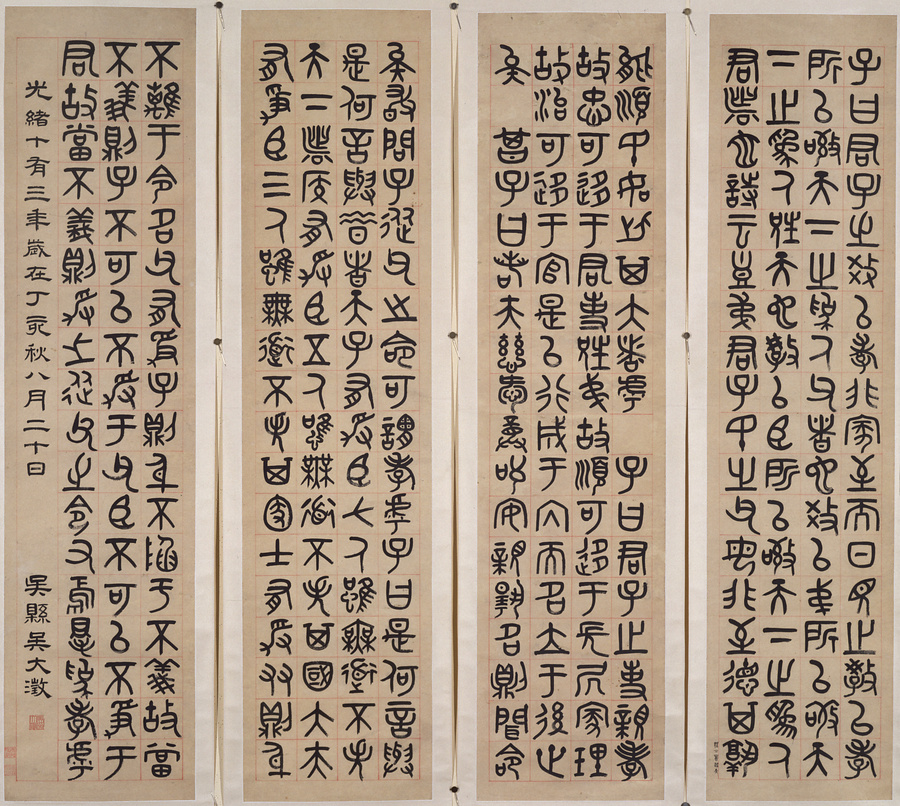 子曰君子之教以孝非家至而日見之教以孝
所以敬天下之為人父者也教以弟所以敬天
下之為人兄者也教以臣所以敬天下之為人
君者也詩云豈弟君子民之父母非至德其孰
能順民如此其大者乎 子曰君子之事親孝
故忠可移于君事兄弟故順可移于長居家理
故治可移于官是以行成于內而名立于後世
矣 曾子曰若夫慈愛恭敬安親揚名則聞命
矣敢問子從父之命可謂孝乎子曰是何言與
是何言與昔者天子有爭臣七人雖無道不失
天下諸侯有爭臣五人雖無道不失其國大夫
有爭臣三人雖無道不失其家士有爭友則身
不離于令名父有爭子則身不陷于不義故當
不義則子不可以不爭于父臣不可以不爭于
君故當不義則爭之從父之令又焉得為孝乎
光緒十有三年歲在丁亥秋八月二十日 吳縣吳大澂